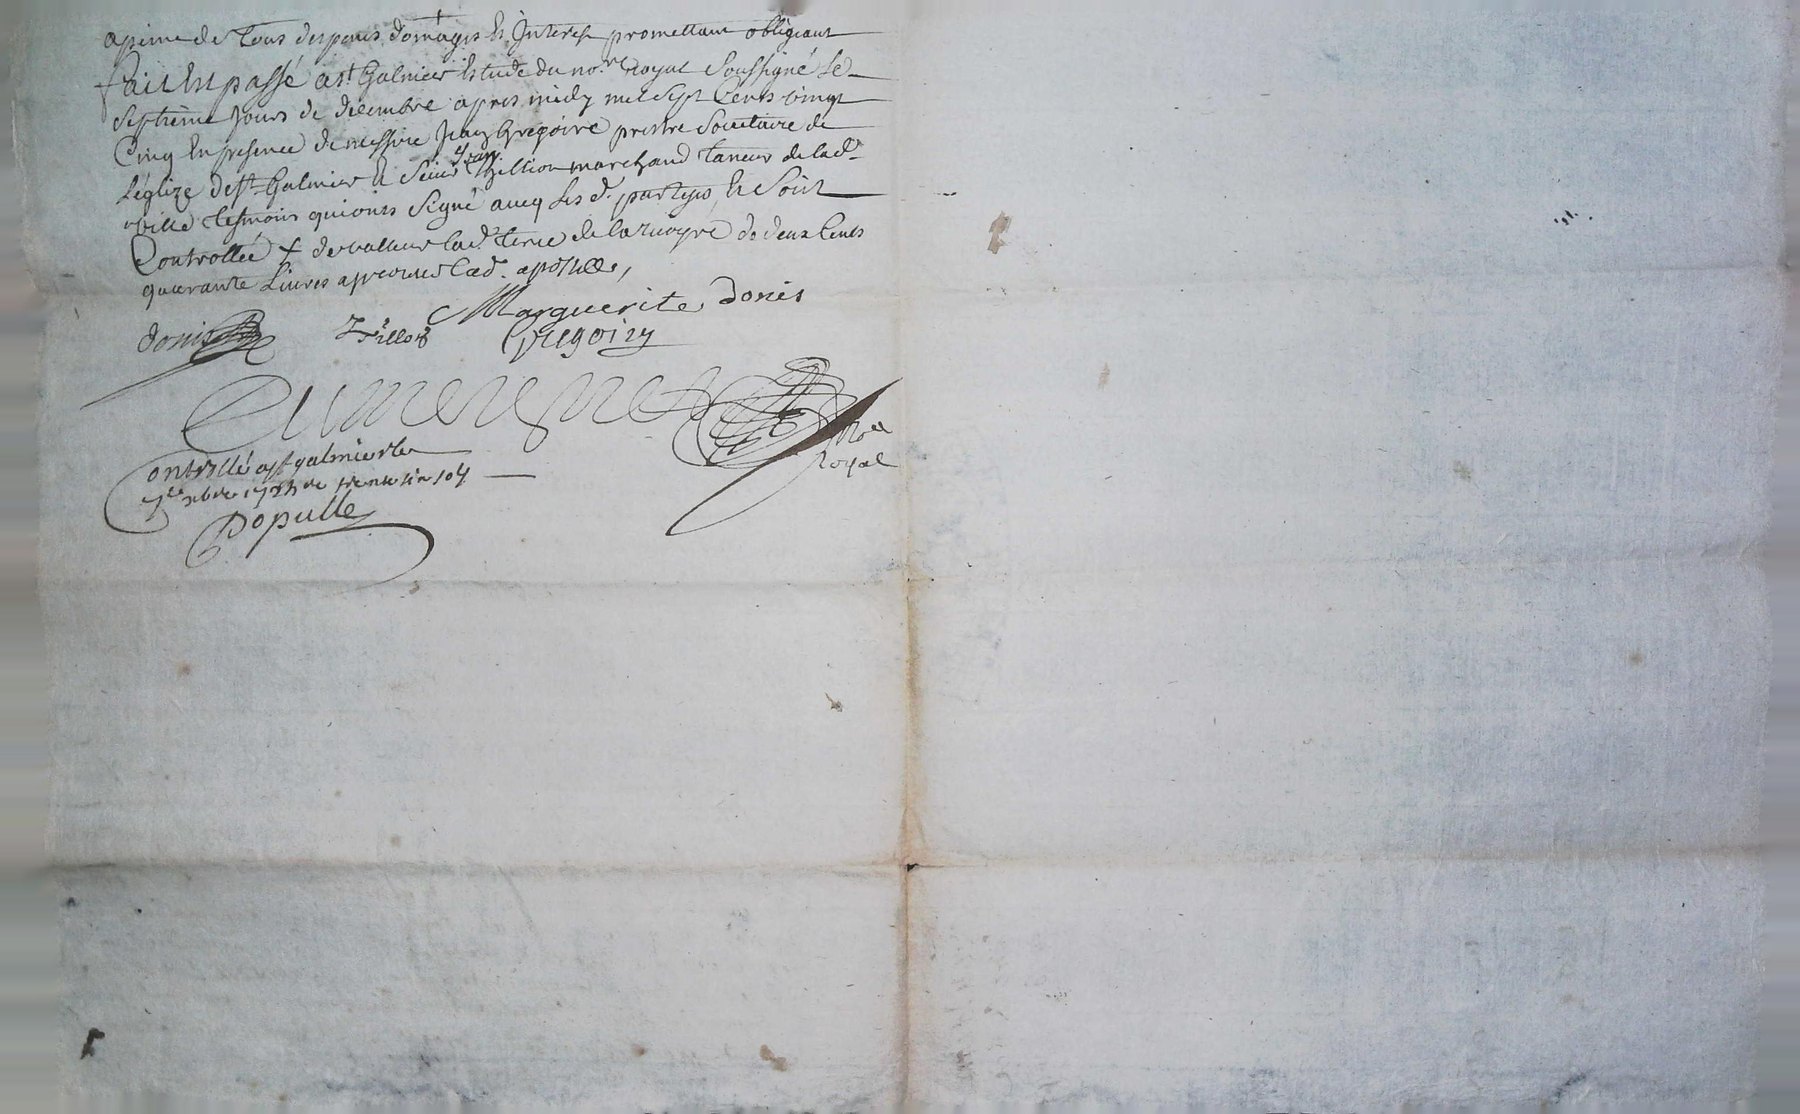 apeine de tous despens domages et Interest promettant obligeant
fait et passé a st Galmier Estude du no.re royal soussigné le
septieme Jours de decembre apres midy mil sept cents vingt
Cinq En presence de messire Jean Gregoire prestre societaire de
Léglize de st Galmier et sieur Jean Thillion marchand taneur de lad.
ville tesmoins qui onts signé avecq les d. partyes, et soit
Controllée + de valleur lad. terre de la de deux Cents
quarante Livres aprouvé lad. apostille,
Marguerite donis
donis Thillon Gregoire
no.re
royal
Controllé a st galmier le
7e xbre 17 re trente six s
Populle